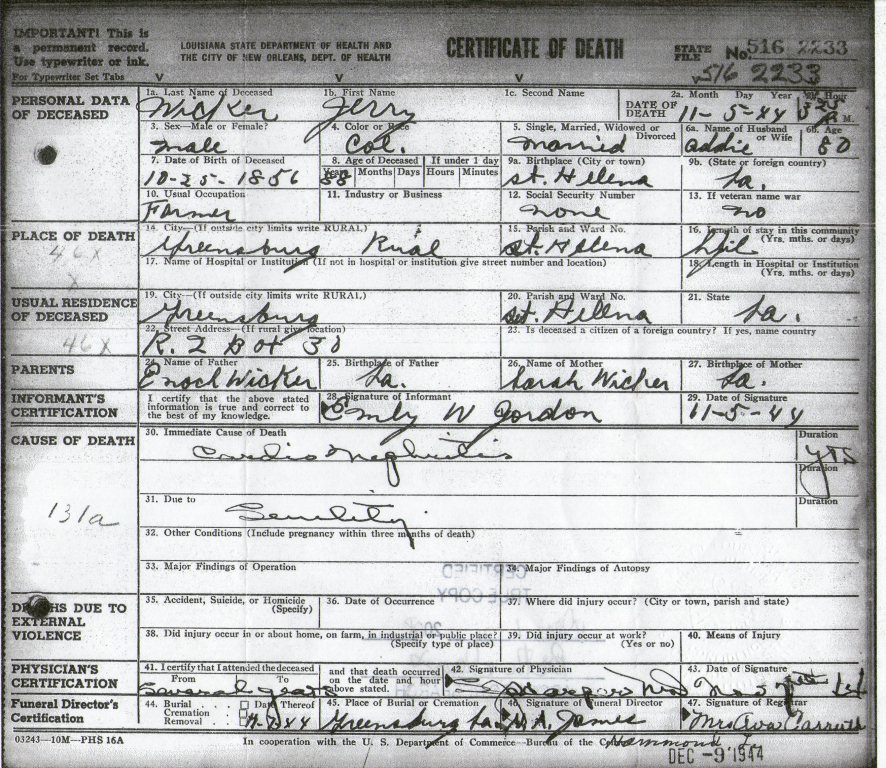 IMPORTANT! This is
a permanent record.
Use typewriter or ink.
For Typewriter Set Tabs
LOUISIANA STATE DEPARTMENT OF HEALTH AND
THE CITY OF NEW ORLEANS, DEPT. OF HEALTH
CERTIFICATE OF DEATH
STATE FILE No. 516 2233
516 2233
V V V
PERSONAL DATA OF DECEASED
1a. Last Name of Deceased 1b. First Name 1c. Second Name
Wicker Jerry
2a. Month Day Year Hour
DATE OF DEATH 11-5-44 M.
3. Sex—Male or Female? 4. Color or Race 5. Single, Married, Widowed or Divorced 6a. Name of Husband or Wife 6b. Age
male Col. married addie 80
7. Date of Birth of Deceased 8. Age of Deceased If under 1 day 9a. Birthplace (City or town) 9b. (State or foreign country)
Years Months Days Hours Minutes
10-25-1856 88 St. Helena La.
10. Usual Occupation 11. Industry or Business 12. Social Security Number 13. If veteran name war
Farmer none no
PLACE OF DEATH
46x
x
14. City—(If outside city limits write RURAL) 15. Parish and Ward No. 16. Length of stay in this community (Yrs. mths. or days)
Greensburg Rural St. Helena
17. Name of Hospital or Institution (If not in hospital or institution give street number and location) 18. Length in Hospital or Institution (Yrs. mths. or days)
USUAL RESIDENCE OF DECEASED
46x
19. City—(If outside city limits write RURAL) 20. Parish and Ward No. 21. State
Greensburg St. Helena La.
22. Street Address—(If rural give location) 23. Is deceased a citizen of a foreign country? If yes, name country
R. 2 Box 30
PARENTS
24. Name of Father 25. Birthplace of Father 26. Name of Mother 27. Birthplace of Mother
Enoch Wicker La. Sarah Wicker La.
INFORMANT'S CERTIFICATION
I certify that the above stated
information is true and correct to
the best of my knowledge.
28. Signature of Informant 29. Date of Signature
Emly W Jordon 11-5-44
CAUSE OF DEATH
131a
30. Immediate Cause of Death Duration
Cardio Nephritis yrs
Duration
31. Due to Duration
Senility
32. Other Conditions (Include pregnancy within three months of death)
33. Major Findings of Operation 34. Major Findings of Autopsy
CERTIFIED
TRUE COPY
DEATHS DUE TO EXTERNAL VIOLENCE
35. Accident, Suicide, or Homicide (Specify) 36. Date of Occurrence 37. Where did injury occur? (City or town, parish and state)
38. Did injury occur in or about home, on farm, in industrial or public place? (Specify type of place) 39. Did injury occur at work? (Yes or no) 40. Means of Injury
PHYSICIAN'S CERTIFICATION
41. I certify that I attended the deceased
From To
Several years
and that death occurred
on the date and hour
above stated.
42. Signature of Physician 43. Date of Signature
Harper MD Nov
Funeral Director's Certification
44. Burial Cremation Removal Date Thereof
45. Place of Burial or Cremation 46. Signature of Funeral Director 47. Signature of Registrar
Greensburg La James Mrs Ava
Hammond La
03243—10M—PHS 16A
In cooperation with the U. S. Department of Commerce—Bureau of the
DEC -9 1944